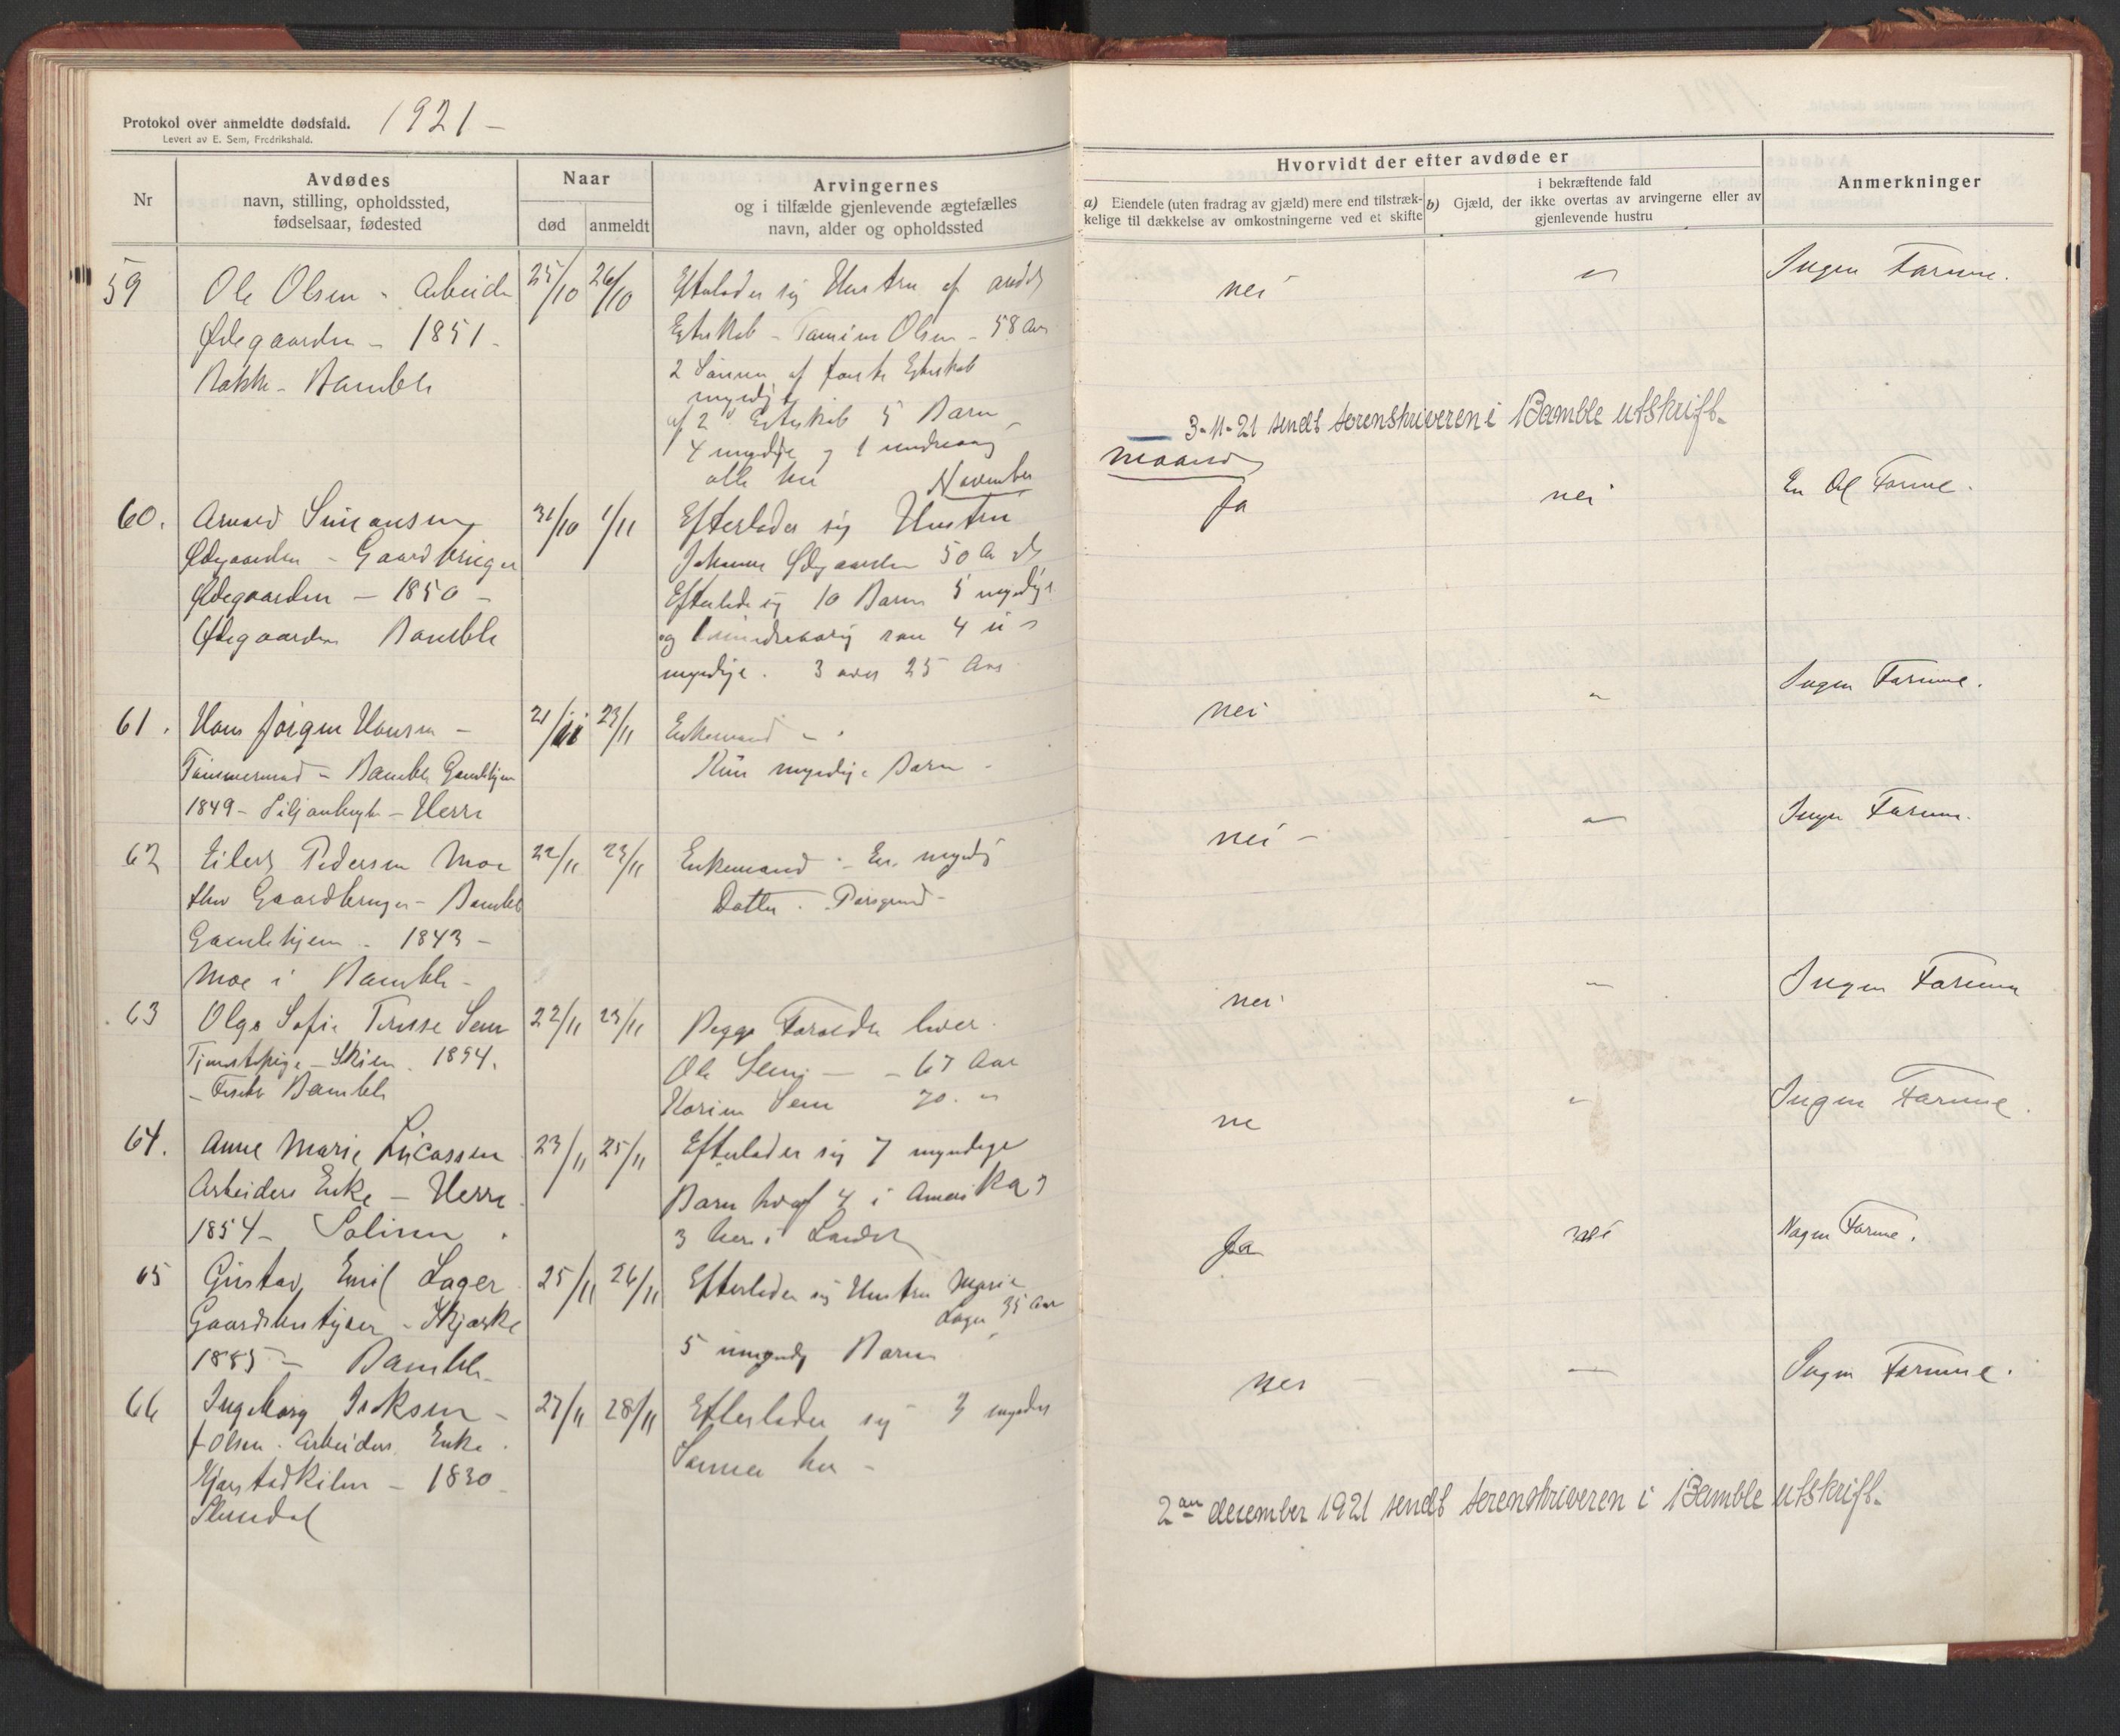 Protokol over anmeldte dødsfald. 1921 -
Levert av E. Sem, Fredrikshald.
Nr
Avdødes
navn, stilling, opholdssted,
fødselsaar, fødested
Naar
død
anmeldt
Arvingernes
og i tilfælde gjenlevende ægtefælles
navn, alder og opholdssted
Hvorvidt der efter avdøde er
a) Eiendele (uten fradrag av gjæld) mere end tilstræk-
kelige til dækkelse av omkostningerne ved et skifte
i bekræftende fald
b) Gjæld, der ikke overtas av arvingerne eller av
gjenlevende hustru
Anmerkninger
59
Ole Olsen - Arbeider
Ødegaarden - 1851 -
Bamble
25/10 26/10
Efterlader sig Hustru af andet
Egteskab - Olsen - 58 Aar
2 Sønner af første Egteskab
myndige
af 2 Egteskab 5 Barn
4 myndige og 1 umyndig
alle her
November
nei
"
Ingen Formue.
3-11-21 sendt sorenskriveren i Bamble utskrift.
maaned
60.
Simonsen
Ødegaarden - Gaardbruger
Ødegaarden - 1850 -
Ødegaarden Bamble
31/10 1/11
Efterlader sig Hustru
Ødegaarden 50 Aar
Efterlader sig 10 Barn 5 myndige
og 4
myndige. 3 over 25 Aar
Ja
nei
En Del Formue.
61.
Hans Jørgen Hansen -
Tømmermand - Bamble Gamlehjem
1849 - - Herre
21/11 23/11
Enkemand -
Kun myndige Barn -
nei
"
Ingen Formue.
62
Eilert Pedersen Moe
Gaardbruger - Bamble
Gamlehjem - 1843 -
Moe i Bamble -
22/11 23/11
Enkemand - En myndig
Datter - Porsgrund -
nei -
"
Ingen Formue.
63
Olga Sofie Sem
Tjenestepige - Skien - 1894.
- Bamble
22/11 23/11
Begge Forældre lever.
Ole Sem - - 67 Aar
Karine Sem 70 - "
nei
"
Ingen Formue
64.
Anne Marie Lucassen
Arbeiders Enke - Herre
1854 -
23/11 25/11
Efterlader sig 7 myndige
Barn hvoraf 4 i Amerika
3 her i Landet
"
Ingen Formue.
65
Gustav Emil Lager
Gaardsbestyrer -
1885 - Bamble
25/11 26/11
Efterlader sig Hustru Marie
Lager 35 Aar
5 umyndig Barn
Ja
nei
Nogen Formue.
66
Ingeborg Isaksen -
f Olsen - Arbeiders Enke
- 1830
27/11 28/11
Efterlader sig 3 myndige
Sønner her -
nei -
-
Ingen Formue.
2den december 1921 sendt sorenskriveren i Bamble utskrift.